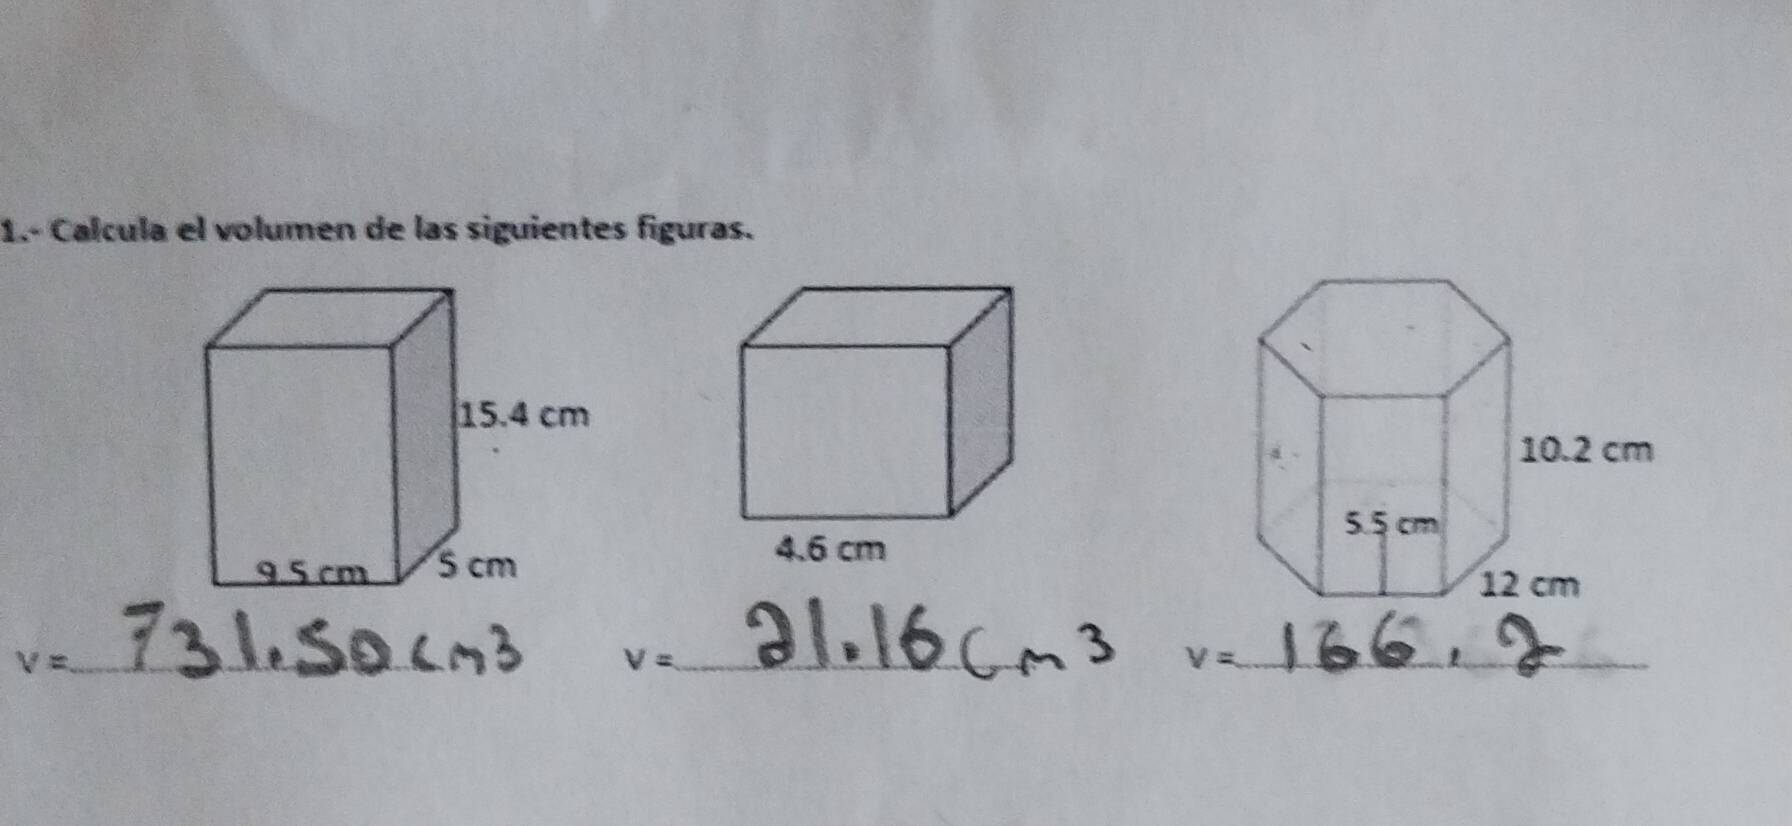 1.- Calcula el volumen de las siguientes figuras.
15.4 cm
9.5 cm
5 cm
4.6 cm
10.2 cm
5.5 cm
12 cm
v= 731.50 cm3
v= 21.16 cm3
v= 166.2